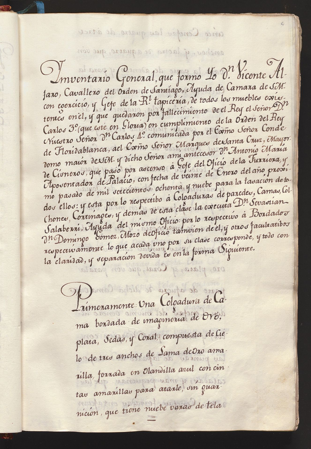 Inventario General, que formo Yo Dn. Vicente Al-
faro, Cavallero del orden de Santiago, Ayuda de Camara de S.M.
con exercicio, y Gefe de la Rl. tapiceria, de todos los muebles conte-
nentes en el, y que quedaron por fallecimiento de el Rey el Señor Dn.
Carlos 3º (que este en Gloria) en cumplimiento de la Orden del Rey
Nuestro Señor Dn. Carlos 4º comunicada por el Exmo Señor Conde
de Floridablanca, al Exmo Señor Marques de Santa Cruz, Mayor-
domo mayor de S.M. y dicho Señor a mi antecesor Dn. Antonio Maria
de Cisneros, que pasò por ascenso à Gefe del Oficio de la Furriera, y
Aposentador de Palacio, con fecha de veinte de Enero del año proxi-
mo pasado de mil setecientos ochenta, y nuebe para la tasacion de to-
dos ellos: y esta por lo respectibo à Colgaduras de paredes, Camas, Col-
chones, Cortinages, y demas de esta clase la executa Dn. Sevastian
Salaberri, Ayuda del mismo Oficio: por lo respectivo à Bordados
Dn. Domingo Maestro oficial tambien de el, y otros facultatibos
respectivamente lo que acada uno por su clase corresponde, y todo con
la claridad, y separacion devida es en la forma Siguiente.
Primeramente Una Colgadura de Ca-
ma bordada de imagineria de Oro,
plata, Sedas, y Coral compuesta de Cie-
lo de tres anchos de Lama de Oro ama-
rilla, forrada en Olandilla azul con cin-
tas amarillas para atarle, sin guar-
nicion, que tiene nuebe varas de tela